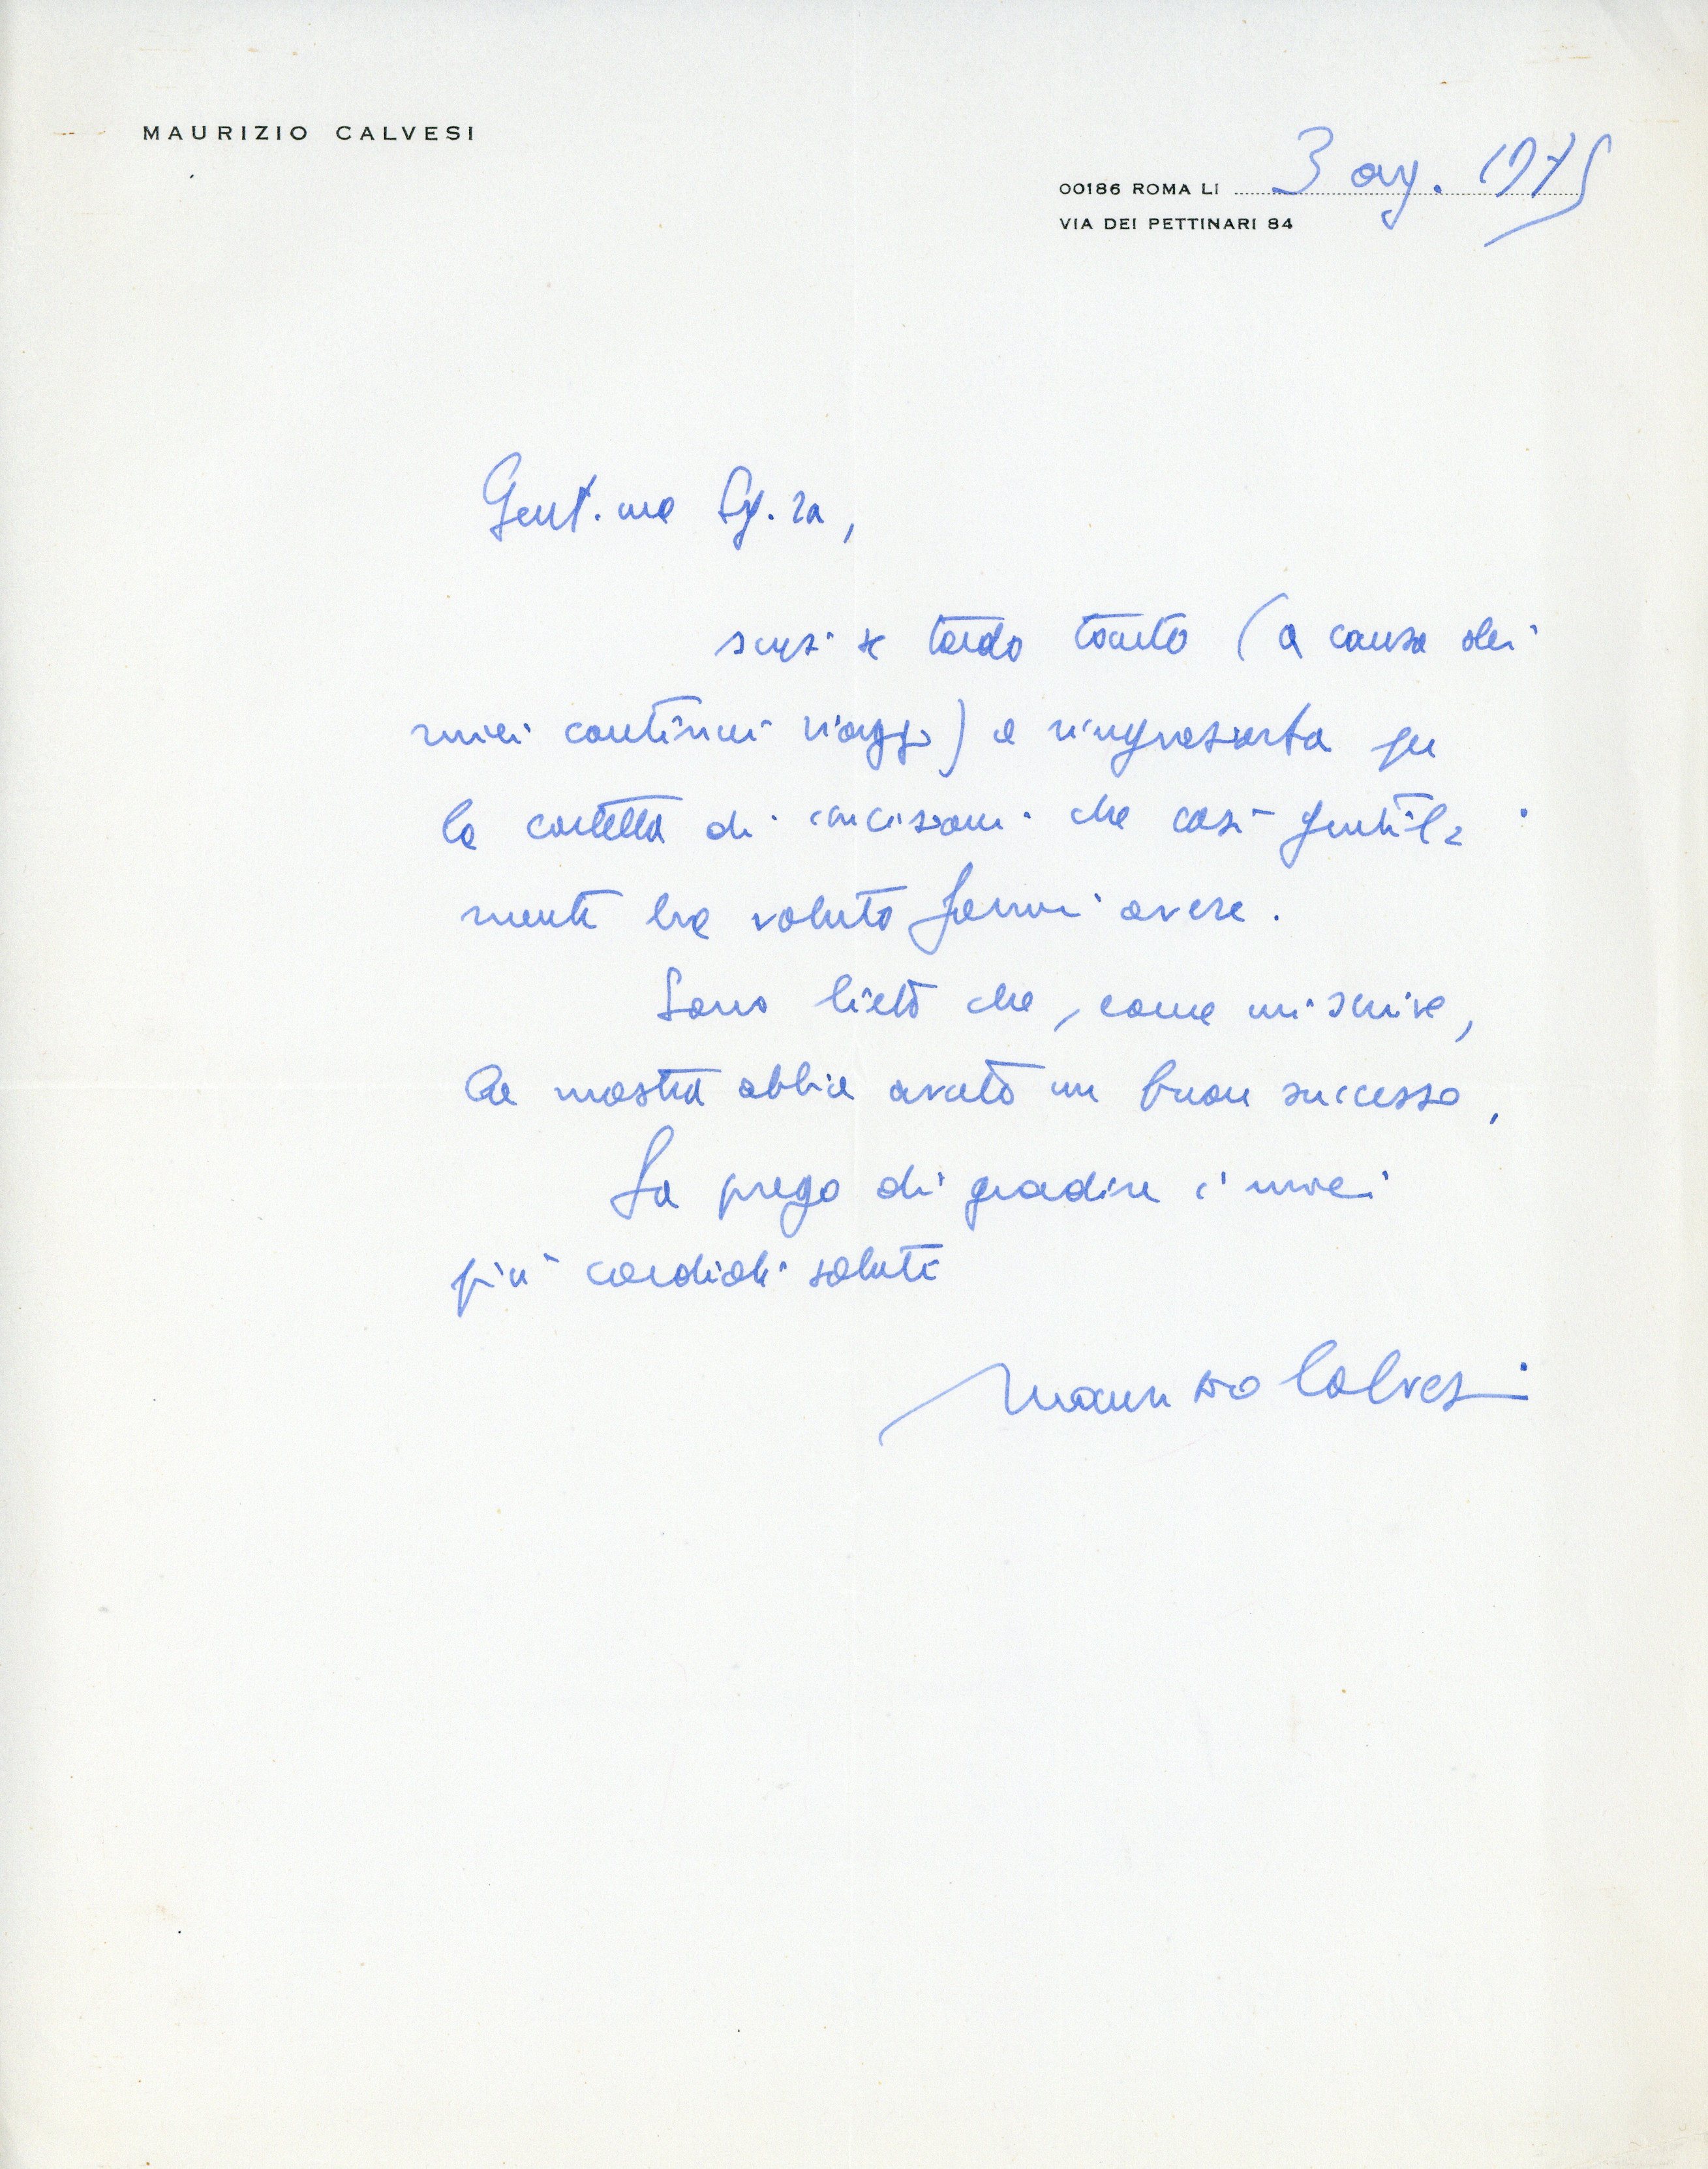 MAURIZIO CALVESI
00186 ROMA LI 3 ag. 1975
VIA DEI PETTINARI 84
Gent.ma Sg.ra,
scusi se tardo tanto (a causa dei
miei continui viaggi) a ringraziarla per
la cartella di incisioni che così gentil=
mente ha voluto farmi avere.
Sono lieto che, come mi scrive,
la mostra abbia avuto un buon successo,
La prego di gradire i miei
più cordiali saluti
Maurizio Calvesi